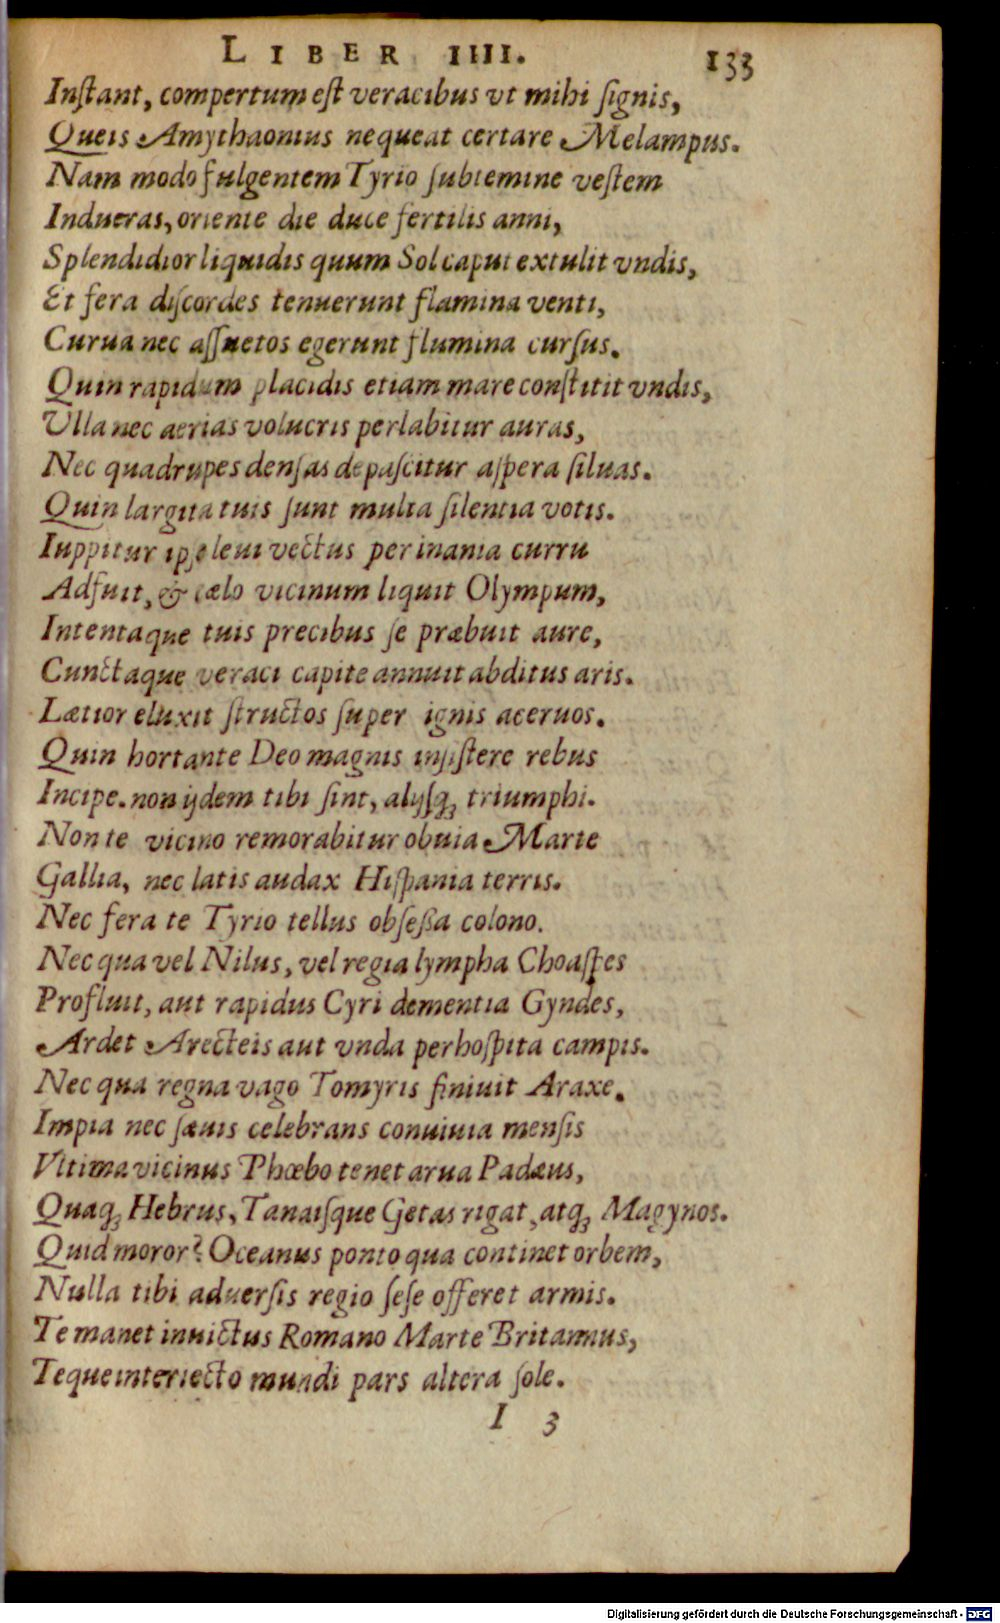 LIBER IIII. 133
Inſtant, compertum eſt veracibus vt mihi ſignis,
Queis Amythaonius nequeat certare Melampus.
Nam modo fulgentem Tyrio ſubtemine veſtem
Indueras, oriente die duce fertilis anni,
Splendidior liquidis quum Sol caput extulit vndis,
Et fera diſcordes tenuerunt flamina venti,
Curua nec aſſuetos egerunt flumina curſus.
Quin rapidum placidis etiam mare conſtitit vndis,
Vlla nec aerias volucris perlabitur auras,
Nec quadrupes denſas depaſcitur aſpera ſiluas.
Quin largita tuis ſunt multa ſilentia votis.
Iuppitur ipſe leui vectus per inania curru
Adfuit, & cælo vicinum liquit Olympum,
Intentaque tuis precibus ſe præbuit aure,
Cunctaque veraci capite annuit abditus aris.
Lætior eluxit ſtructos ſuper ignis aceruos.
Quin hortante Deo magnis inſiſtere rebus
Incipe. non ijdem tibi ſint, alijſq; triumphi.
Non te vicino remorabitur obuia Marte
Gallia, nec latis audax Hiſpania terris.
Nec fera te Tyrio tellus obſeßa colono.
Nec qua vel Nilus, vel regia lympha Choaſpes
Profluit, aut rapidus Cyri dementia Gyndes,
Ardet Arecteis aut vnda perhoſpita campis.
Nec qua regna vago Tomyris finiuit Araxe.
Impia nec ſæuis celebrans conuiuia menſis
Vltima vicinus Phœbo tenet arua Padæus,
Quaq; Hebrus, Tanaiſque Getas rigat, atq; Magynos.
Quid moror? Oceanus ponto qua continet orbem,
Nulla tibi aduerſis regio ſeſe offeret armis.
Te manet inuictus Romano Marte Britannus,
Teque interiecto mundi pars altera ſole.
I 3
Digitalisierung gefördert durch die Deutsche Forschungsgemeinschaft - DFG